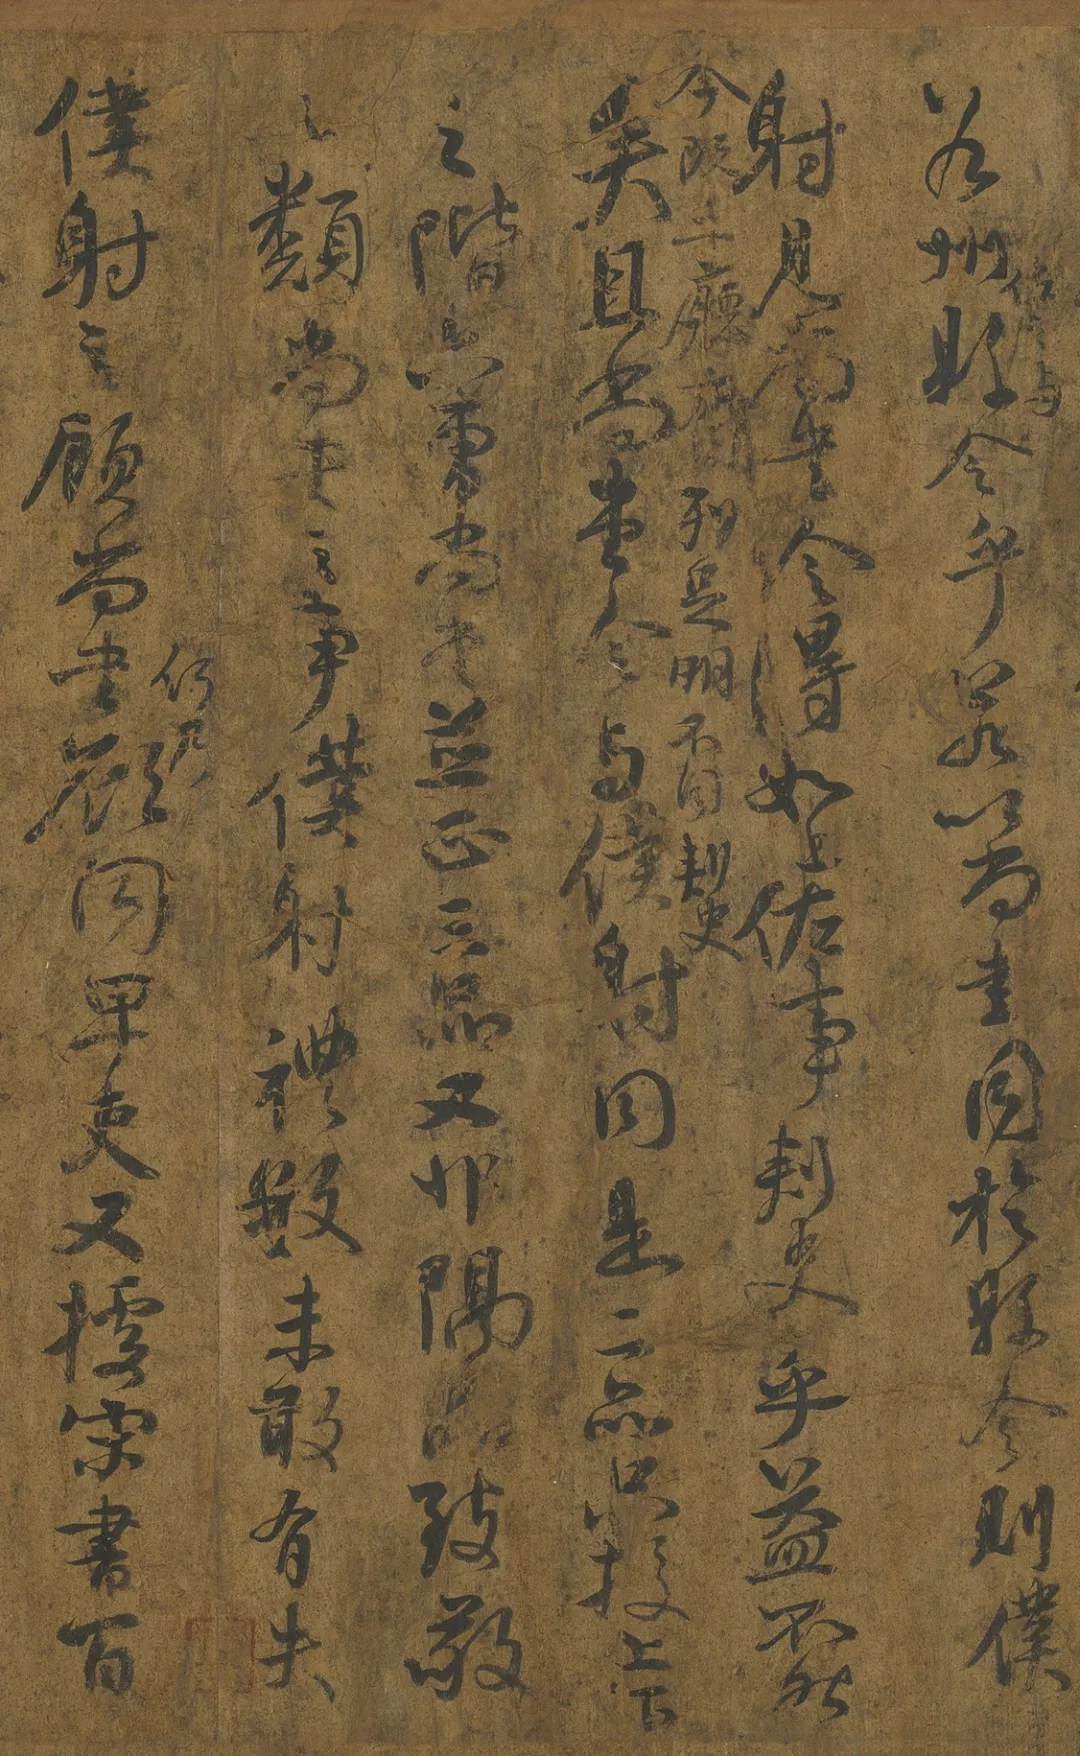 若州縣令乎若以尚書同於縣令則僕
佐之与
射見尚書令得如上佐事刺史乎益不然
今既三廳齊列足明不同刺史
矣且尚書令与僕射同是二品只校上下
之階六曹尚書並正三品又非隔品致敬
之類尚書之事僕射禮數未敢有失
僕射之顧尚書欲同卑吏又據宋書百
何乃